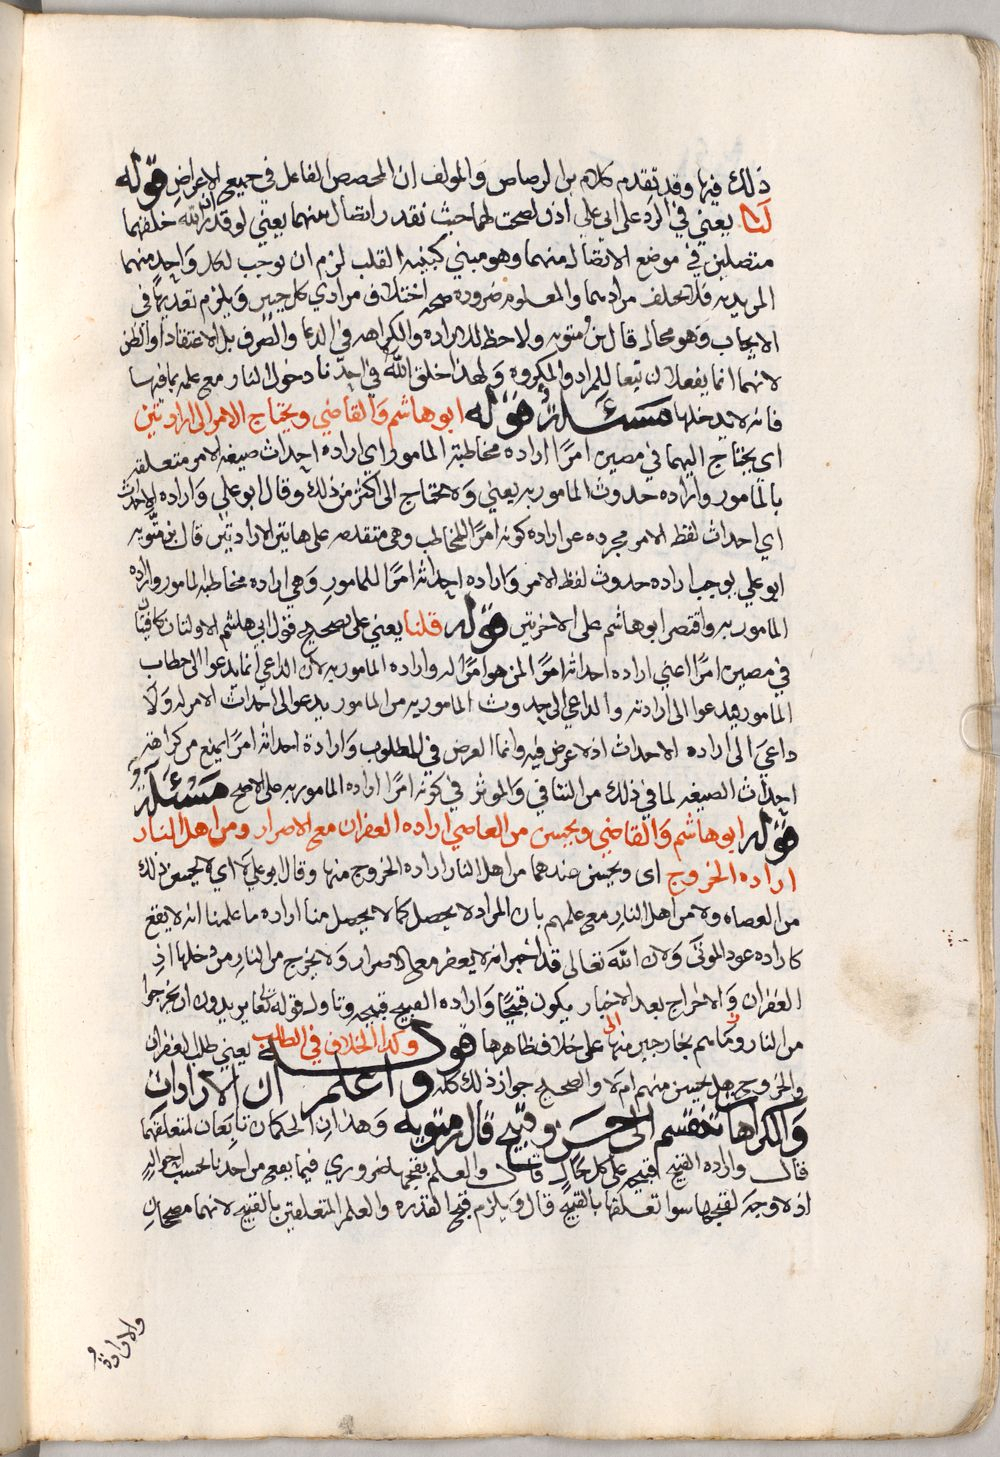 ذلك فيها وقد تقدم كلام بن الرصاص والمولف ان المخصص الفاعل في جميع الاعراض قوله
لنا يعني في الرد على ابي علي اذن لصحت لهما حيث نقدر اتصال بينهما يعني لو قدر ان الله خلقهما
متصلين في موضع الاتصال منهما وهو مبني كبنيه القلب لزم ان يوجب لكل واحد منهما
المريديه فلا يختلف مرادهما والمعلوم ضروره صحه اختلاف مرادي كل حيين ويلزم تعديها في
الايجاب وهو محال قال بن متويه ولا حظ للاراده والكراهه في الدعا والصرف بل الاعتقاد او الظن
لانهما انما يفعلان تبعا للمراد والمكروه ولهذا خلق الله في احدنا دخول النار مع علمه بما فيها
فانه لا يدخلها مسئلة قوله ابو هاشم والقاضي ويحتاج الامر الى ارادتين
اي يحتاج اليهما في مصيره امرًا اراده مخاطبته المامور اي اراده احداث صيغه الامر متعلقه
بالمامور واراده حدوث المامور به يعني ولا يحتاج الى اكثر من ذلك وقال ابو علي واراده الاحداث
اي احداث لفظ الامر مجرده عن اراده كونه امرًا للمخاطب وهي متقدمه على هاتين الارادتين قال بن متويه
ابو علي يوجب اراده حدوث لفظ الامر واراده احداثه امرًا للمامور وهي اراده مخاطبه المامور واراده
المامور به واقتصر ابو هاشم على الاخرتين قوله قلنا يعني على تصحيح قول ابي هاشم الاولتان كافيتان
في مصيره امرًا اعني اراده احداثه امرًا لمن هو امرًا له واراده المامور به لان الداعي انما يدعوا الى خطاب
المامور يدعوا الى ارادته والداعي الى حدوث المامور به من المامور يدعوا الى احداث الامر له ولا
داعي الى اراده الاحداث اذ لا غرض فيه وانما الغرض في المطلوب وارادة احداثه امرًا يمنع من كراهة
احداث الصيغه لما في ذلك من التنافي والموثر في كونه امرًا اراده المامور به على الاصح مسئلة
قوله ابو هاشم والقاضي ويحسن من العاصي اراده الغفران مع الاصرار ومن اهل النار
اراده الخروج اى ويحسن عندهما من اهل النار اراده الخروج منها وقال ابو علي لا اي لا يحسن ذلك
من العصاه ولا من اهل النار مع علمهم بان المراد لا يحصل كما لا يحصل منا اراده ما علمنا انه لا يقع
كاراده عود الموتى ولان الله تعالى قد اخبر انه لا يغفر مع الاصرار ولا يخرج من النار من دخلها اذ
الغفران والاخراج بعد الاخبار يكون قبيحًا واراده القبيح قبيحه وتاول قوله تعالى يريدون ان يخرجوا
من النار وما هم بخارجين منها على خلاف ظاهرها قوله وكذا الخلاف في الطلب يعني طلب الغفران
والخروج هل يحسن منهم ام لا والصحيح جواز ذلك كله واعلم ان الارادات
والكراهات تنقسم الى حسن وقبيح قال بن متويه وهذان الحكمان تابعان لمتعلقهما
قال واراده القبيح قبيحه على كل حال قال والعلم بقبحها ضروري فيما يقع من احدنا بحسب احواله
اذ لا وجه لقبحها سوا تعلقها بالقبيح قال ويلزم قبح القدره والعلم المتعلقين بالقبيح لانهما مصححان
والارادة